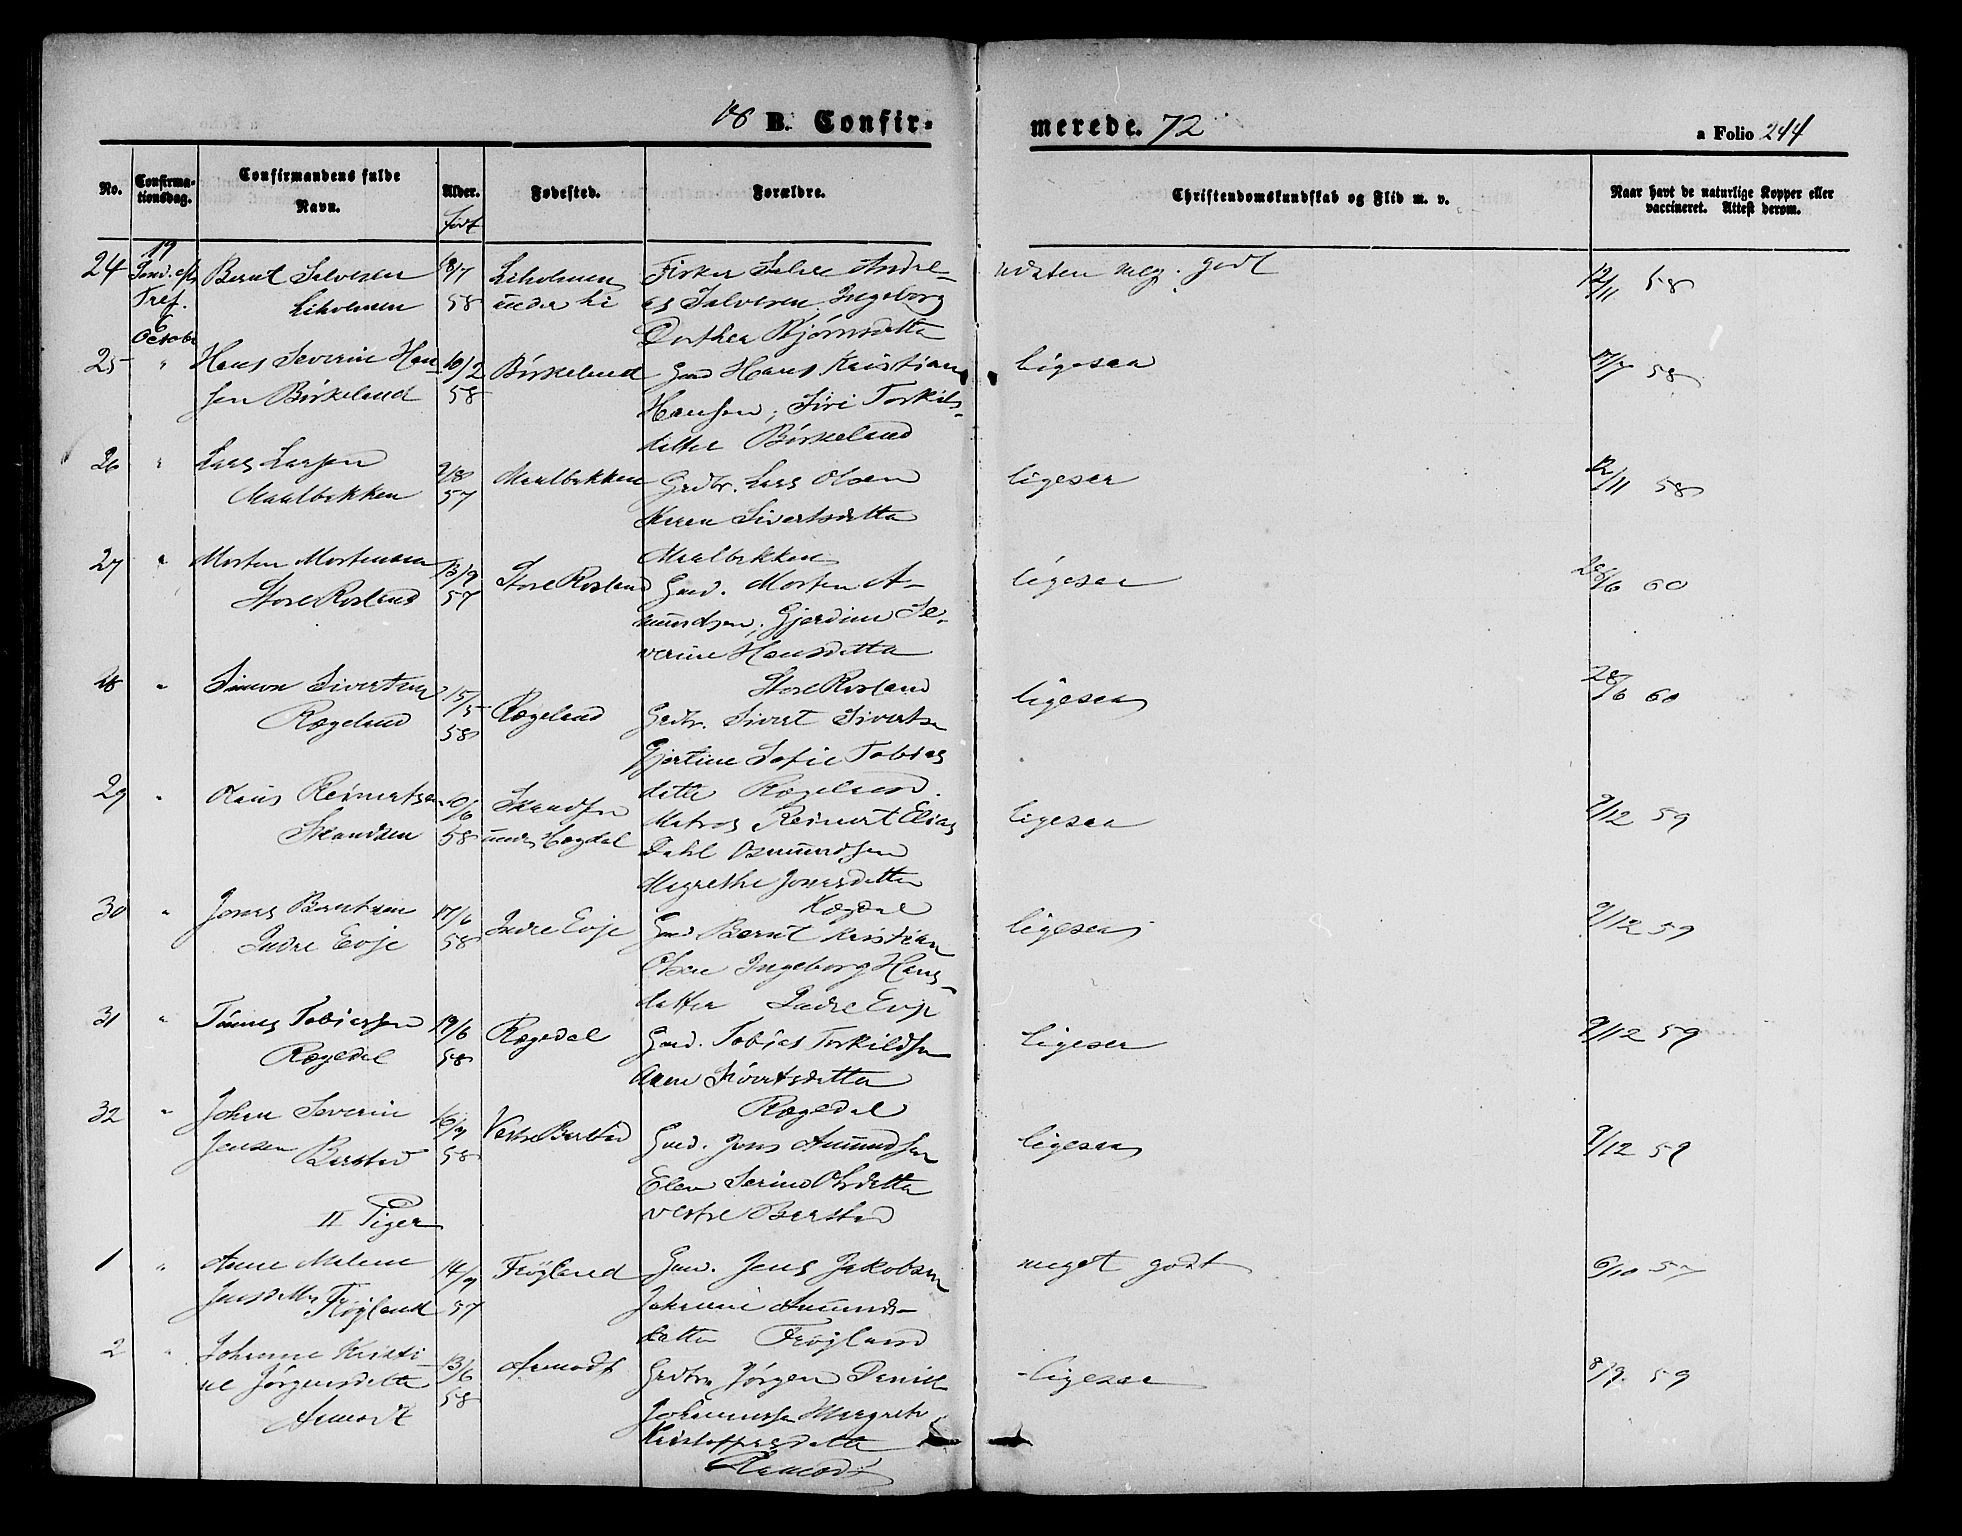 18 B. Confirmerede. 72
a Folio 244
No.
Confirmationsdag.
Confirmandens fulde Navn.
Alder.
født
Fødested.
Forældre.
Christendomskundskab og Flid m. v.
Naar havt de naturlige Kopper eller vaccineret. Attest derom.
24 19 Sønd. eft. Tref. 6 October
Bernt Salvesen
Liholmen
18/7 58
Liholmen
under Li
Fisker Salve Andre-
as Salvesen, Ingeborg
Dorthea Bjørnsdatter
næsten meg. godt
12/11 58
25 "
Hans Severin Han-
sen Birkeland
10/2 58
Birkeland
Gmd Hans Kristian
Hansen, Siri Torkils-
datter Birkeland
ligesaa
17/7 58
26 "
Lars Larsen
Maalbekken
2/8 57
Maalbekken
Grdbr. Lars Olsen
Karen Sivertsdatter
Maalbekken
ligesaa
12/11 58
27 "
Morten Mortensen
Store Rosland
13/9 57
Store Rosland
Gmd. Morten A-
mundsen, Gjerdine Se-
verine Hansdatter
Store Rosland
ligesaa
28/6 60
28 "
Simon Sivertsen
Rægeland
15/5 58
Rægeland
Grdbr. Sivert Sivertsen
Gjertine Sofie Tobias
datter Rægeland.
ligesaa
28/6 60
29 "
Olaus Reinertsen
Skandsen
10/6 58
Skandsen
under Hægdal
Matros Reinert Elias
Dahl Osmundsen
Magrethe Jonasdatter
Hægdal
ligesaa
9/12 59
30 "
Jonas Berntsen
Indre Evje
17/6 58
Indre Evje
Gmd Bernt Kristian
Olsen Ingeborg Hans-
datter Indre Evje
ligesaa
9/12 59
31 "
Tønnes Tobiassen
Rægedal
19/6 58
Rægedal
Gmd. Tobias Torkildsen
Anne Sivertsdatter
Rægedal
ligesaa
9/12 59
32 "
Johan Severin
Jensen Berstad
16/9 58
Vestre Berstad
Gmd. Jens Amundsen
Elen Serine Olsdatter
vestre Berstad
ligesaa
9/12 59
II Piger
1 "
Anne Malene
Jensdatter Frøyland
14/9 57
Frøyland
Gmd. Jens Jakobsen
Johanne Amunds-
datter Frøyland
meget godt
6/10 57
2 "
Johanne Kristi-
ne Jørgensdatter
Aamodt
13/6 58
Aamodt
Grdbr. Jørgen Daniel
Johannessen Magrete
Kristoffersdatter
Aamodt
ligesaa
8/9. 59